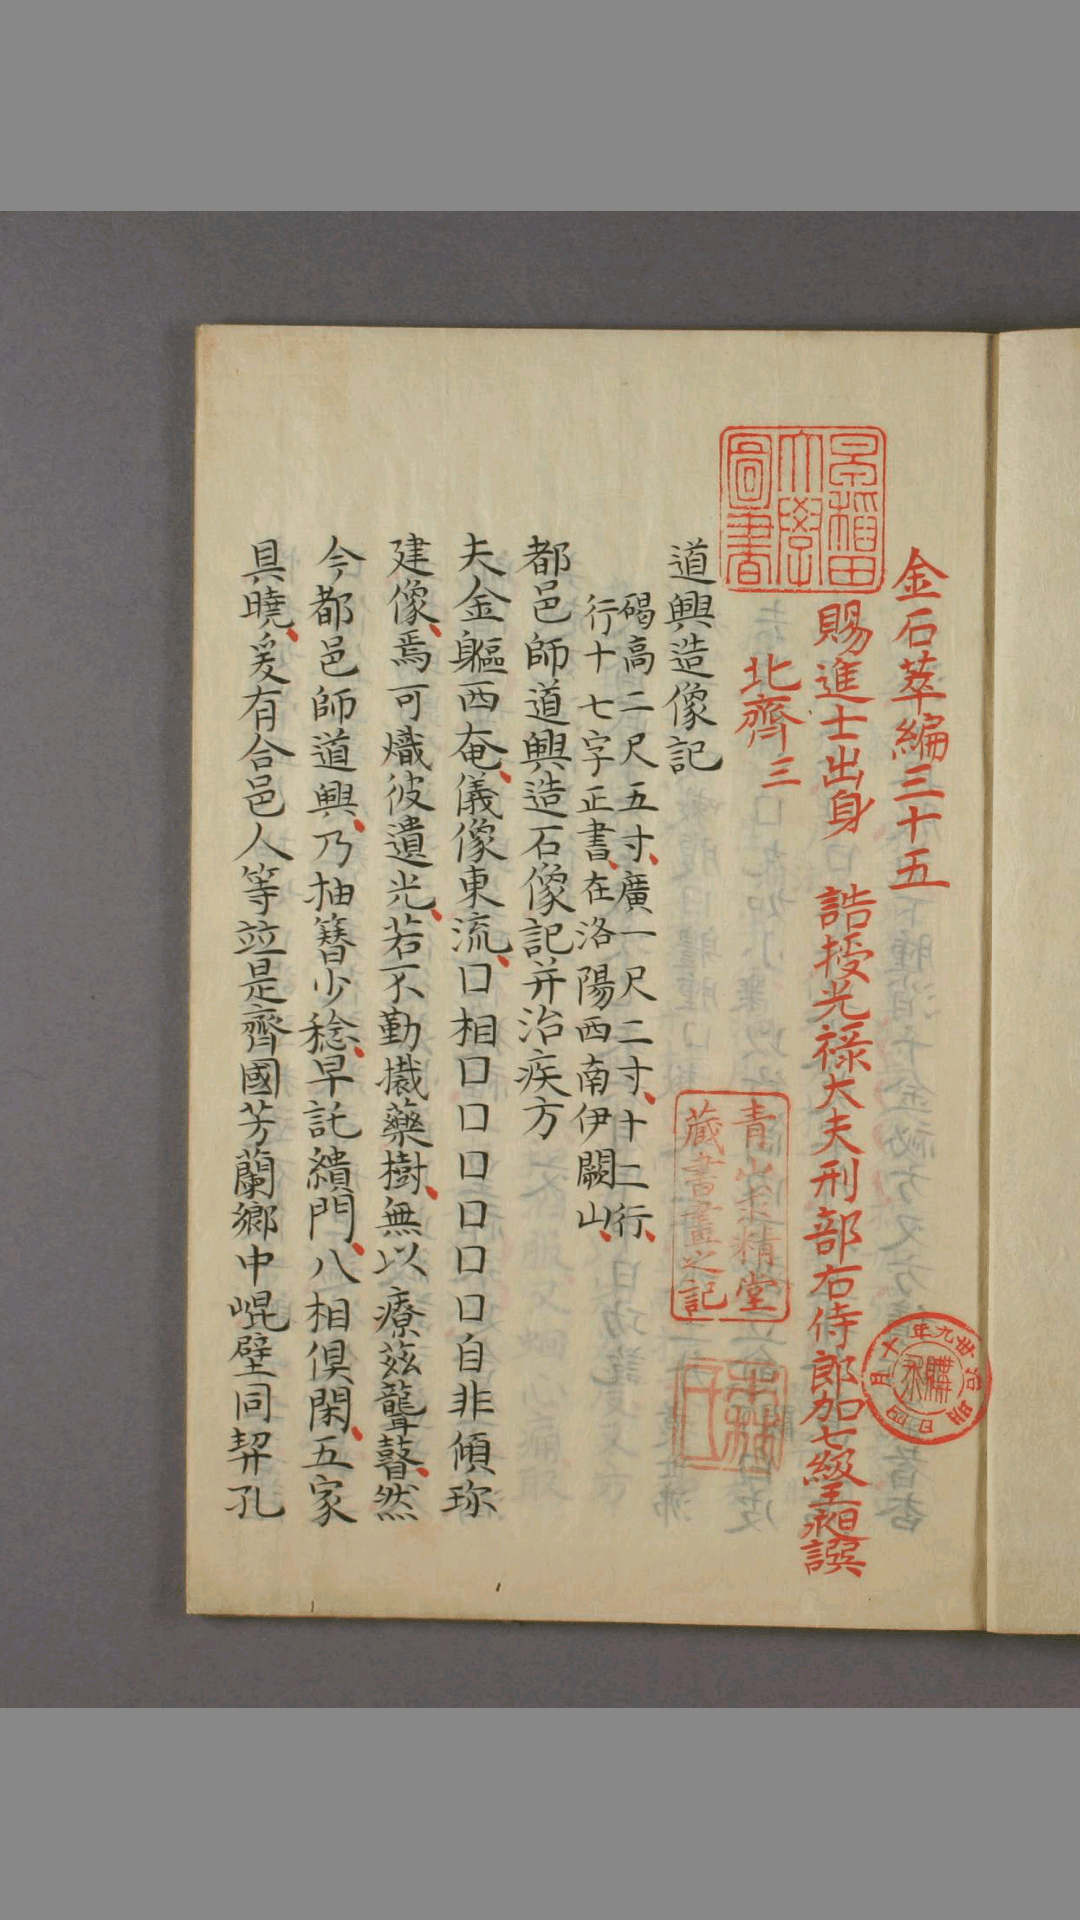 金石萃編三十五
賜進士出身 誥授光祿大夫刑部右侍郎加七級王昶譔
北齊三
道興造像記
碣高二尺五寸、廣一尺二寸、十二行、
行十七字正書、在洛陽西南伊闕山、
都邑師道興造石像記并治疾方
夫金軀西奄、儀像東流、口相口口口口口口自非傾珎
建像、焉可熾彼遺光、若不勤擮藥樹、無以療茲聾瞽、然
今都邑師道興、乃抽簪少稔、早託縯門、八相俱閑、五家
具曉、爰有合邑人等竝是齊國芳蘭鄉中崐璧同契孔
早稲田
大學
圖書
青山求精堂
藏書畫之記
明治卅九年十月四日
購求